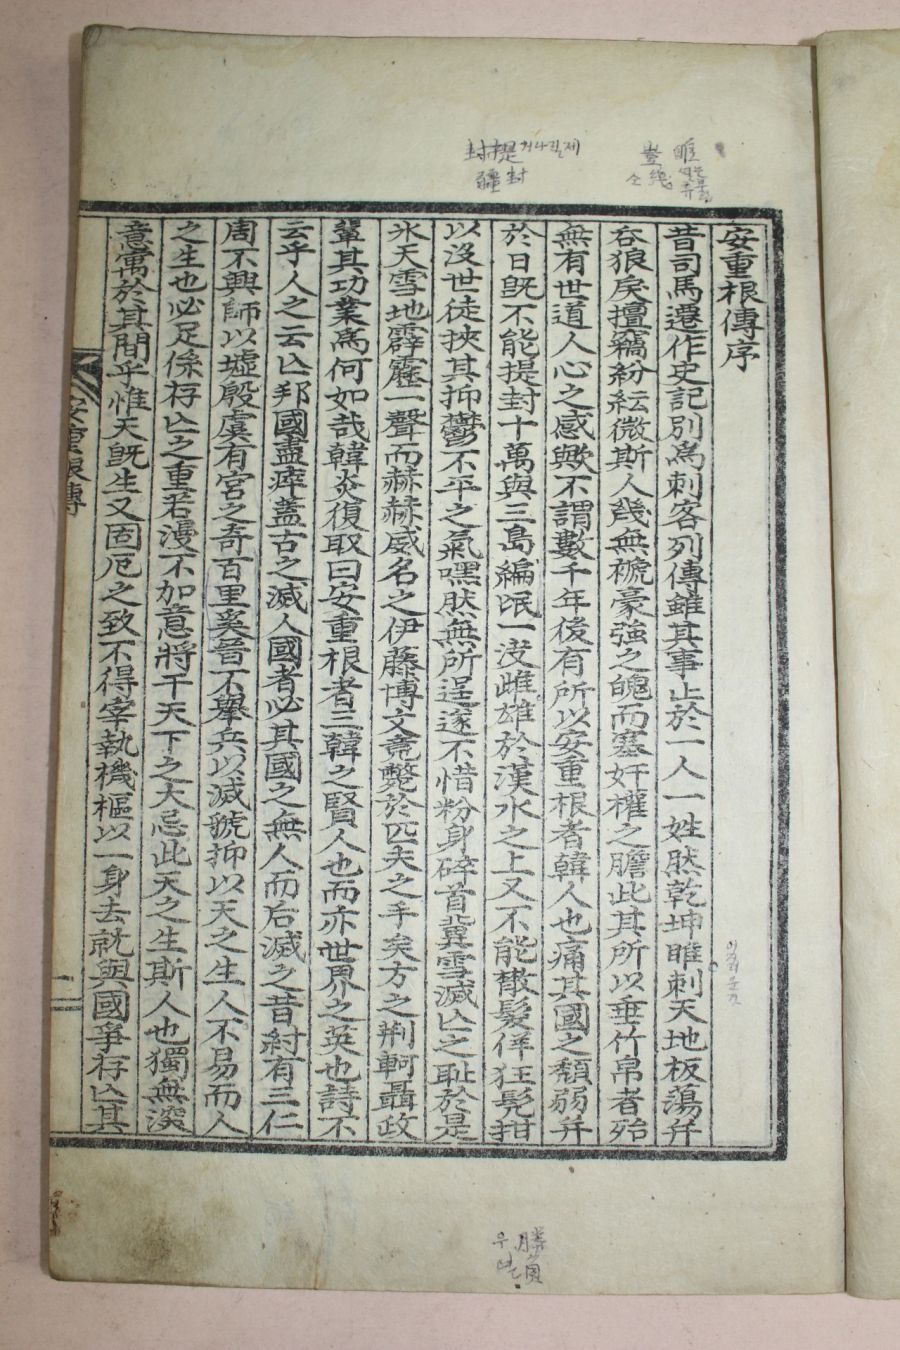 安重根傳序
昔司馬遷作史記別爲刺客列傳雖其事止於一人一姓然乾坤睢刺天地板蕩幷
呑狼戾擅竊紛紜微斯人幾無褫豪強之魄而塞奸權之膽此其所以垂竹帛者殆
無有世道人心之感歟不謂數千年後有所以安重根者韓人也痛其國之頹弱幷
於日旣不能提封十萬與三島編氓一决雌雄於漢水之上又不能散髮佯狂髡鉗
以沒世徒挾其抑鬱不平之氣嘿然無所逞遂不惜粉身碎首冀雪滅亡之耻於是
氷天雪地霹靂一聲而赫赫威名之伊藤博文竟斃於匹夫之手矣方之荆軻聶政
輩其功業爲何如哉韓炎復取曰安重根者三韓之賢人也而亦世界之英也詩不
云乎人之云亡邦國盡瘁蓋古之滅人國者必其國之無人而后滅之昔紂有三仁
周不興師以墟殷虞有宮之奇百里奚晉不擧兵以滅虢抑以天之生人不易而人
之生也必足係存亡之重若漫不加意將干天下之大忌此天之生斯人也獨無深
意寓於其間乎惟天旣生又固厄之致不得宰執機樞以一身去就與國爭存亡其
安重根傳
二
封提
疆封
豈 睢
勝